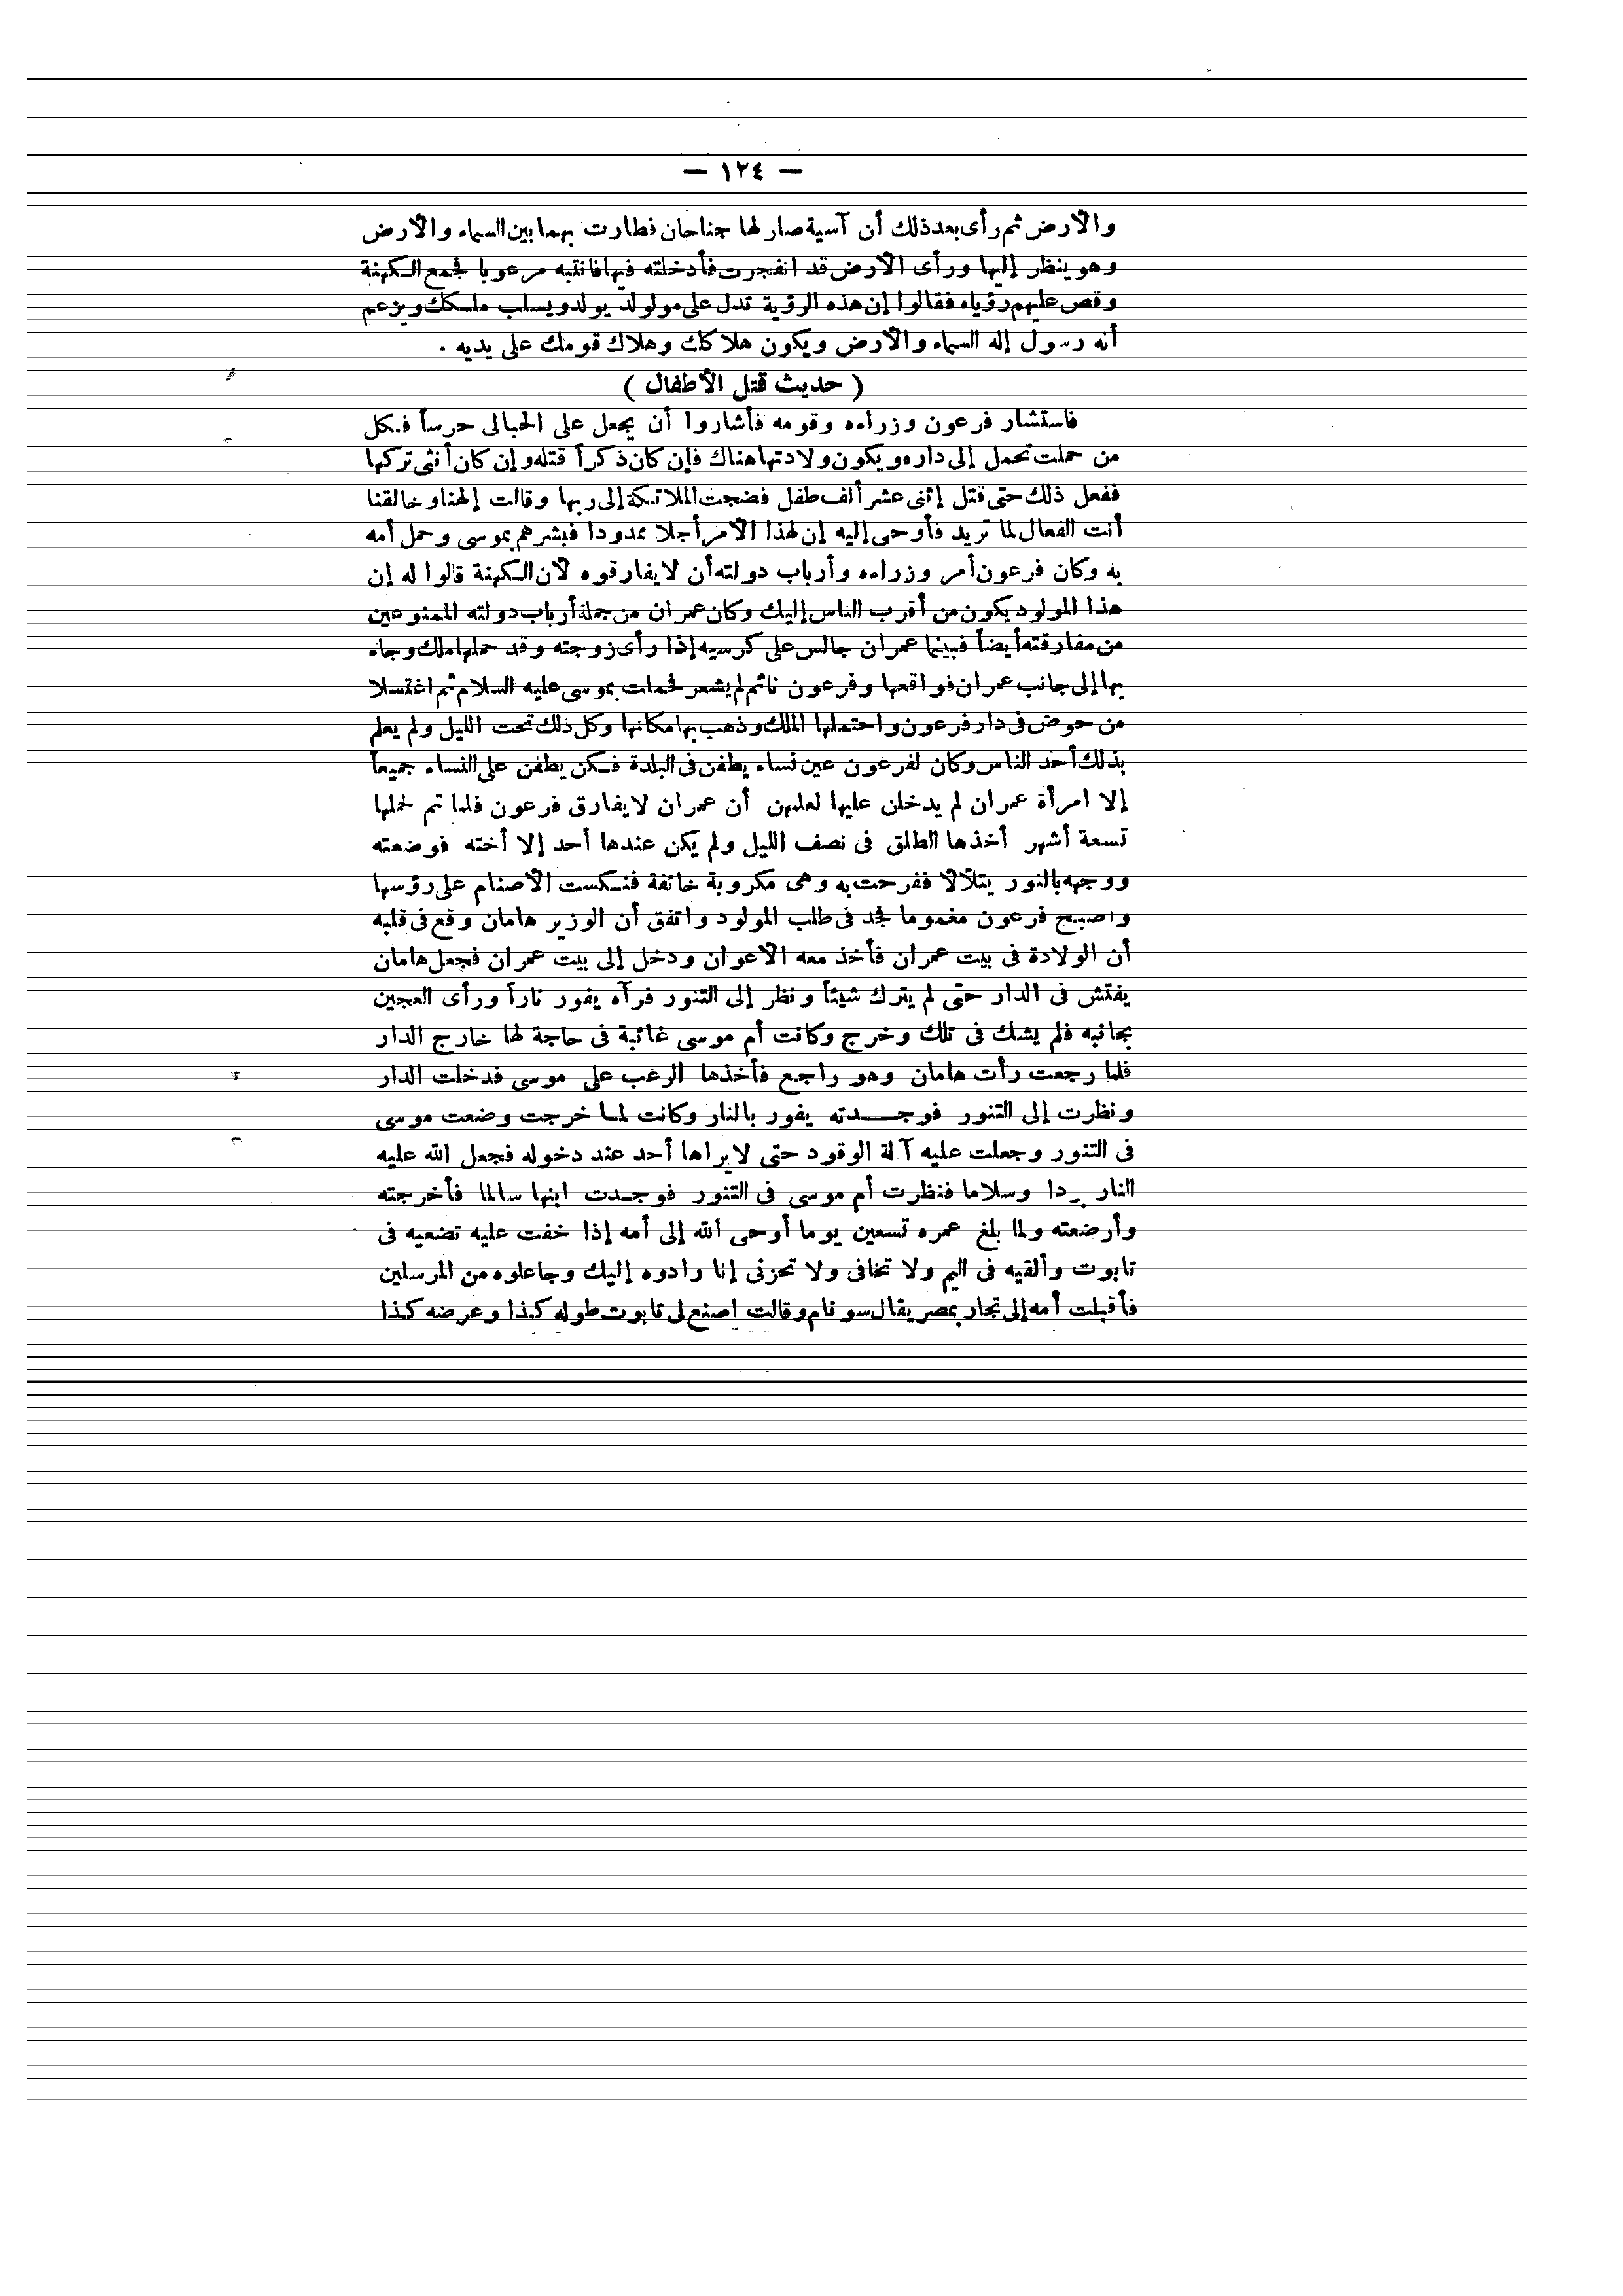 — ١٢٤ —
والأرض ثم رأى بعد ذلك أن آسية صار لها جناحان فطارت بهما بين السماء والأرض
وهو ينظر إليها ورأى الأرض قد انفجرت فأدخلته فيها فانتبه مرعوبا فجمع الكهنة
وقص عليهم رؤياه فقالوا إن هذه الرؤية تدل على مولولد يولد ويسلب ملكك ويزعم
أنه رسول إله السماء والأرض ويكون هلاكك وهلاك قومك على يديه .
( حديث قتل الأطفال )
فاستشار فرعون وزراءه وقومه فأشاروا أن يجعل على الحبالى حرساً فكل
من حملت تحمل إلى داره ويكون ولادتها هناك فإن كان ذكراً قتله وإن كان أنثى تركها
ففعل ذلك حتى قتل إثنى عشر ألف طفل فضجت الملائكة إلى ربها وقالت إلهنا وخالقنا
أنت الفعال لما تريد فأوحى إليه إن لهذا الأمر أجلا ممدودا فبشرهم بموسى وحمل أمه
به وكان فرعون أمر وزراءه وأرباب دولته أن لا يفارقوه لأن الكهنة قالوا له إن
هذا المولود يكون من أقرب الناس إليك وكان عمران من جملة أرباب دولته الممنوعين
من مفارقته أيضاً فبينما عمران جالس على كرسيه إذا رأى زوجته وقد حملها ملك وجاء
بها إلى جانب عمران فواقعها وفرعون نائم لم يشعر فحملت بموسى عليه السلام ثم اغتسلا
من حوض فى دار فرعون واحتملها الملك وذهب بها مكانها وكل ذلك تحت الليل ولم يعلم
بذلك أحد الناس وكان لفرعون عين نساء يطفن فى البلدة فكن يطفن على النساء جميعاً
إلا امرأة عمران لم يدخلن عليها لعلمهن أن عمران لا يفارق فرعون فلما تم لحملها
تسعة أشهر أخذها الطلق فى نصف الليل ولم يكن عندها أحد إلا أخته فوضعته
ووجهه بالنور يتلألأ ففرحت به وهى مكروبة خائفة فنكست الأصنام على رؤسها
واصبح فرعون مغموما فجد فى طلب المولود واتفق أن الوزير هامان وقع فى قلبه
أن الولادة فى بيت عمران فأخذ معه الأعوان ودخل إلى بيت عمران فجعل هامان
يفتش فى الدار حتى لم يترك شيئاً ونظر إلى التنور فرآه يفور ناراً ورأى العجين
بجانبه فلم يشك فى تلك وخرج وكانت أم موسى غائبة فى حاجة لها خارج الدار
فلما رجعت رأت هامان وهو راجع فأخذها الرعب على موسى فدخلت الدار
ونظرت إلى التنور فوجدته يفور بالنار وكانت لما خرجت وضعت موسى
فى التنور وجعلت عليه آلة الوقود حتى لا يراها أحد عند دخوله فجعل الله عليه
النار بردا وسلاما فنظرت أم موسى فى التنور فوجدت ابنها سالما فأخرجته
وأرضعته ولما بلغ عمره تسعين يوما أوحى الله إلى أمه إذا خفت عليه تضعيه فى
تابوت وألقيه فى اليم ولا تخافى ولا تحزنى إنا رادوه إليك وجاعلوه من المرسلين
فأقبلت أمه إلى نجار بمصر يقال سونام وقالت اصنع لى تابوت طوله كذا وعرضه كذا